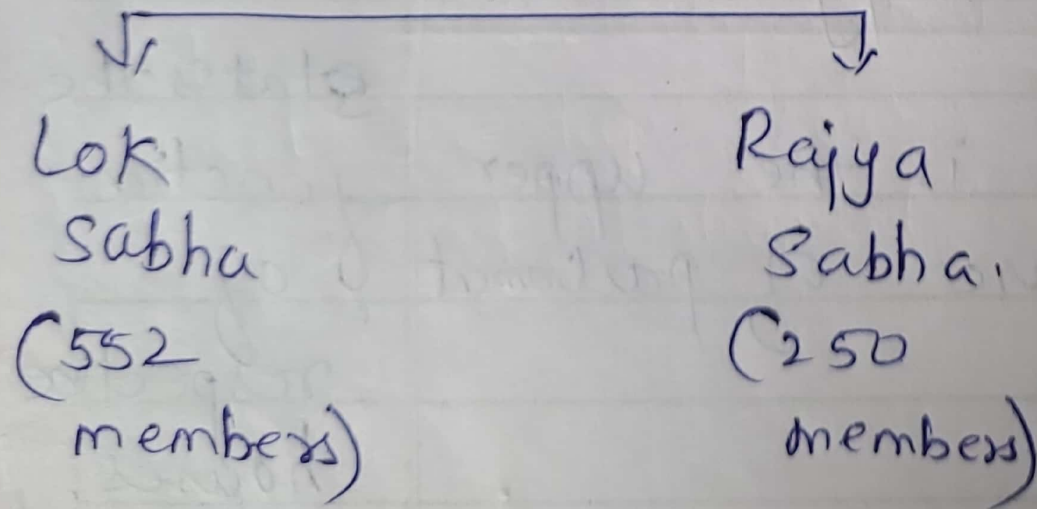 Lok
Sabha
(552
members)
Rajya
Sabha.
(250
members)